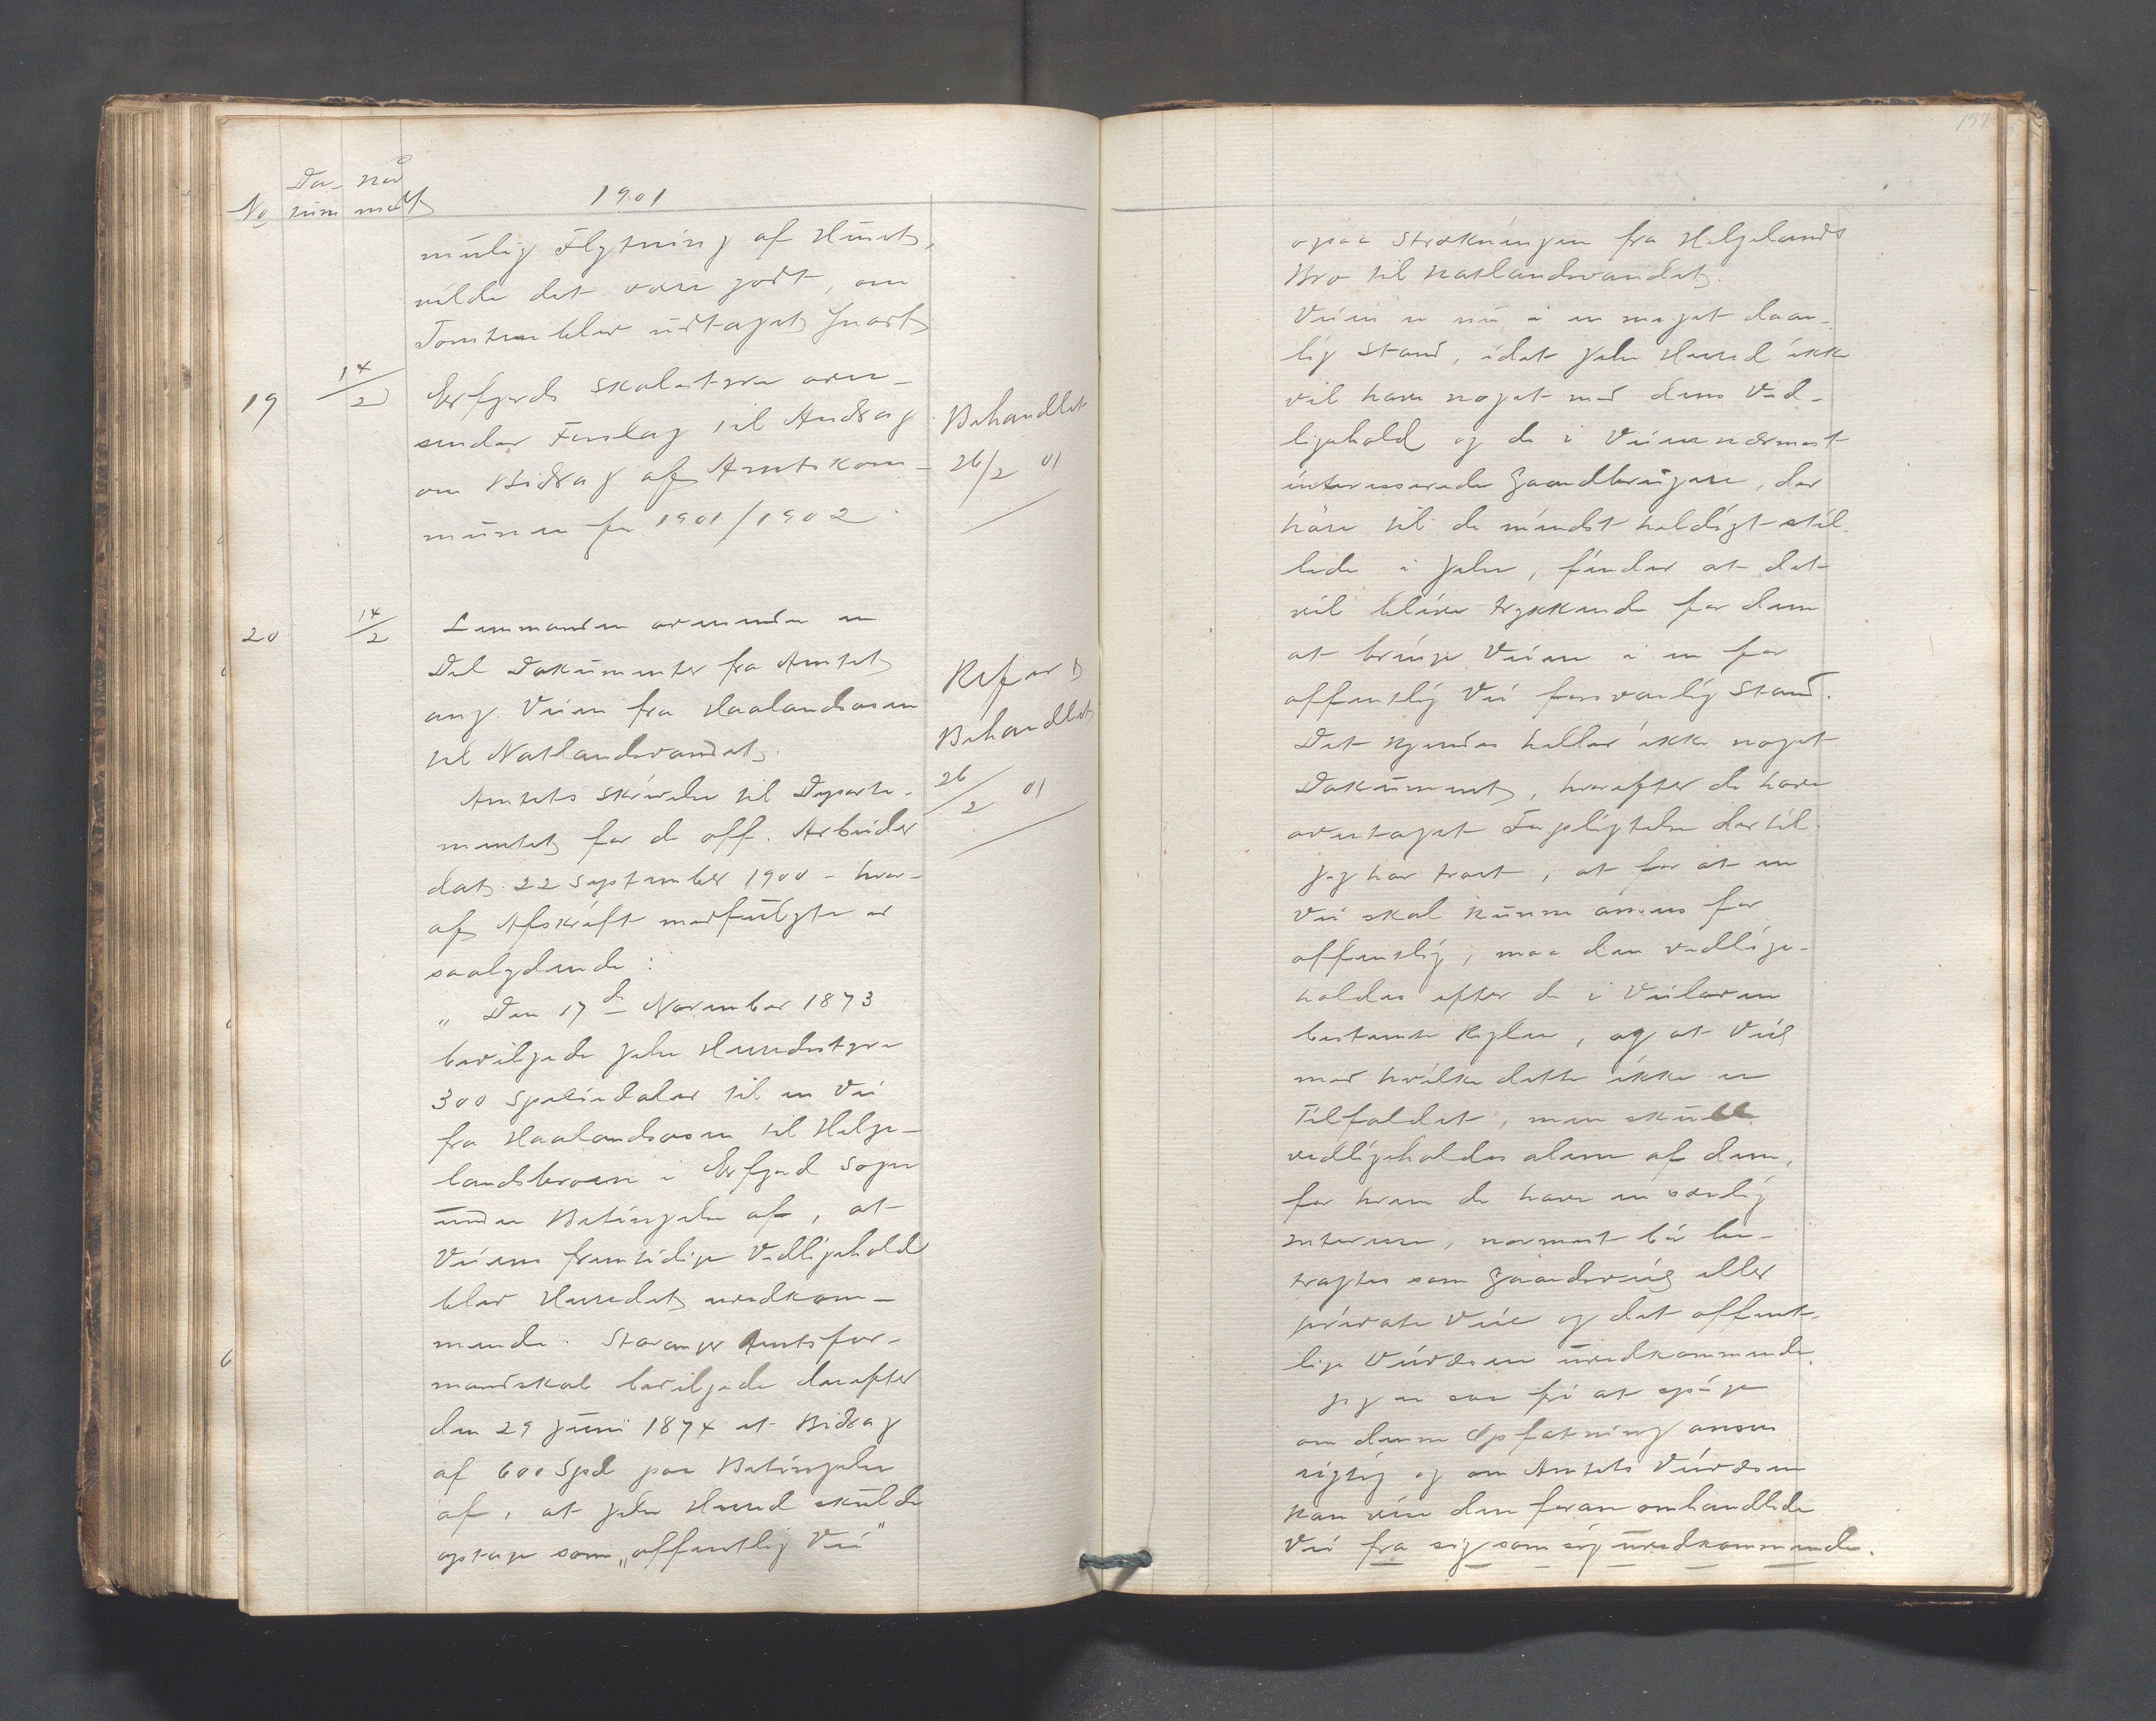 Da- når
No tum modt
1901
mulig Flytning af Huset,
vilde det være godt, om
Tomten blev udtaget snart
19 14/2 Erfjords Skolestyre over-
sender Forslag til Andrag
om Bidrag af Amtskom-
munen for 1901/1902.
Behandlet
26/2 01
20 14/2 Lensmanden oversender en
Del Dokumenter fra Amtet
ang. Veien fra Haalandsosen
til Natlandsvandet.
Refert
Behandlet
26/2 01
Amtets Skrivelse til Departe-
mentet for de off. Arbeider
dat. 22 September 1900 - hvor-
af Afskrift medfulgte er
saalydende:
„Den 17de November 1873
bevilgede Jelse Herredsstyre
300 Speciedaler til en Vei
fra Haalandsosen til Helge-
landsbroen i Erfjord Sogn
under Betingelse af, at
Veiens fremtidige Vedligehold
blev Herredet uvedkom-
mende. Stavanger Amtsfor-
mandskab bevilgede derefter
den 29 Juni 1874 et Bidrag
af 600 Spd paa Betingelse
af, at Jelse Herred skulde
optage som „offentlig Vei"
ogsaa Strækningen fra Helgelands
Bro til Natlandsvandet.
Veien er nu i en meget daar-
lig Stand, idet Jelse Herred ikke
vil have noget med dens Ved-
ligehold og de i Veien nærmest
interesserede Gaardbrugere, der
høre til de mindst heldigt stil-
lede i Jelse, finder at det
vil blive trykkende for dem
at bringe Veien i en for
offentlig Vei forsvarlig Stand.
Det kjendes heller ikke noget
Dokument, hvorefter de have
overtaget Forpligtelse dertil.
Jeg har troet, at for at en
Vei skal kunne ansees for
offentlig, maa den vedlige-
holdes efter de i Veiloven
bestemte Regler, og at Veie
med hvilke dette ikke er
Tilfældet, men skulle
vedligeholdes alene af dem,
for hvem de have en særlig
Interesse, nærmest bør be-
tragtes som Gaardsveie eller
private Veie og det offent-
lige Veivæsen uvedkommende.
Jeg er saa fri at spørge
om denne Opfatning ansees
rigtig og om Amtets Veivæsen
kan vise den foran omhandlede
Vei fra sig som sig uvedkommende.